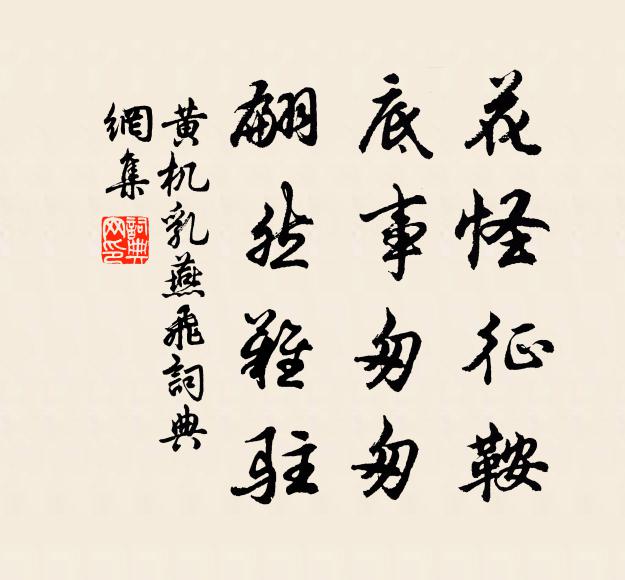 花怪征鞍
底事匆匆
翩然難駐
黄机乳燕飛詞典
網集
詞典
网印